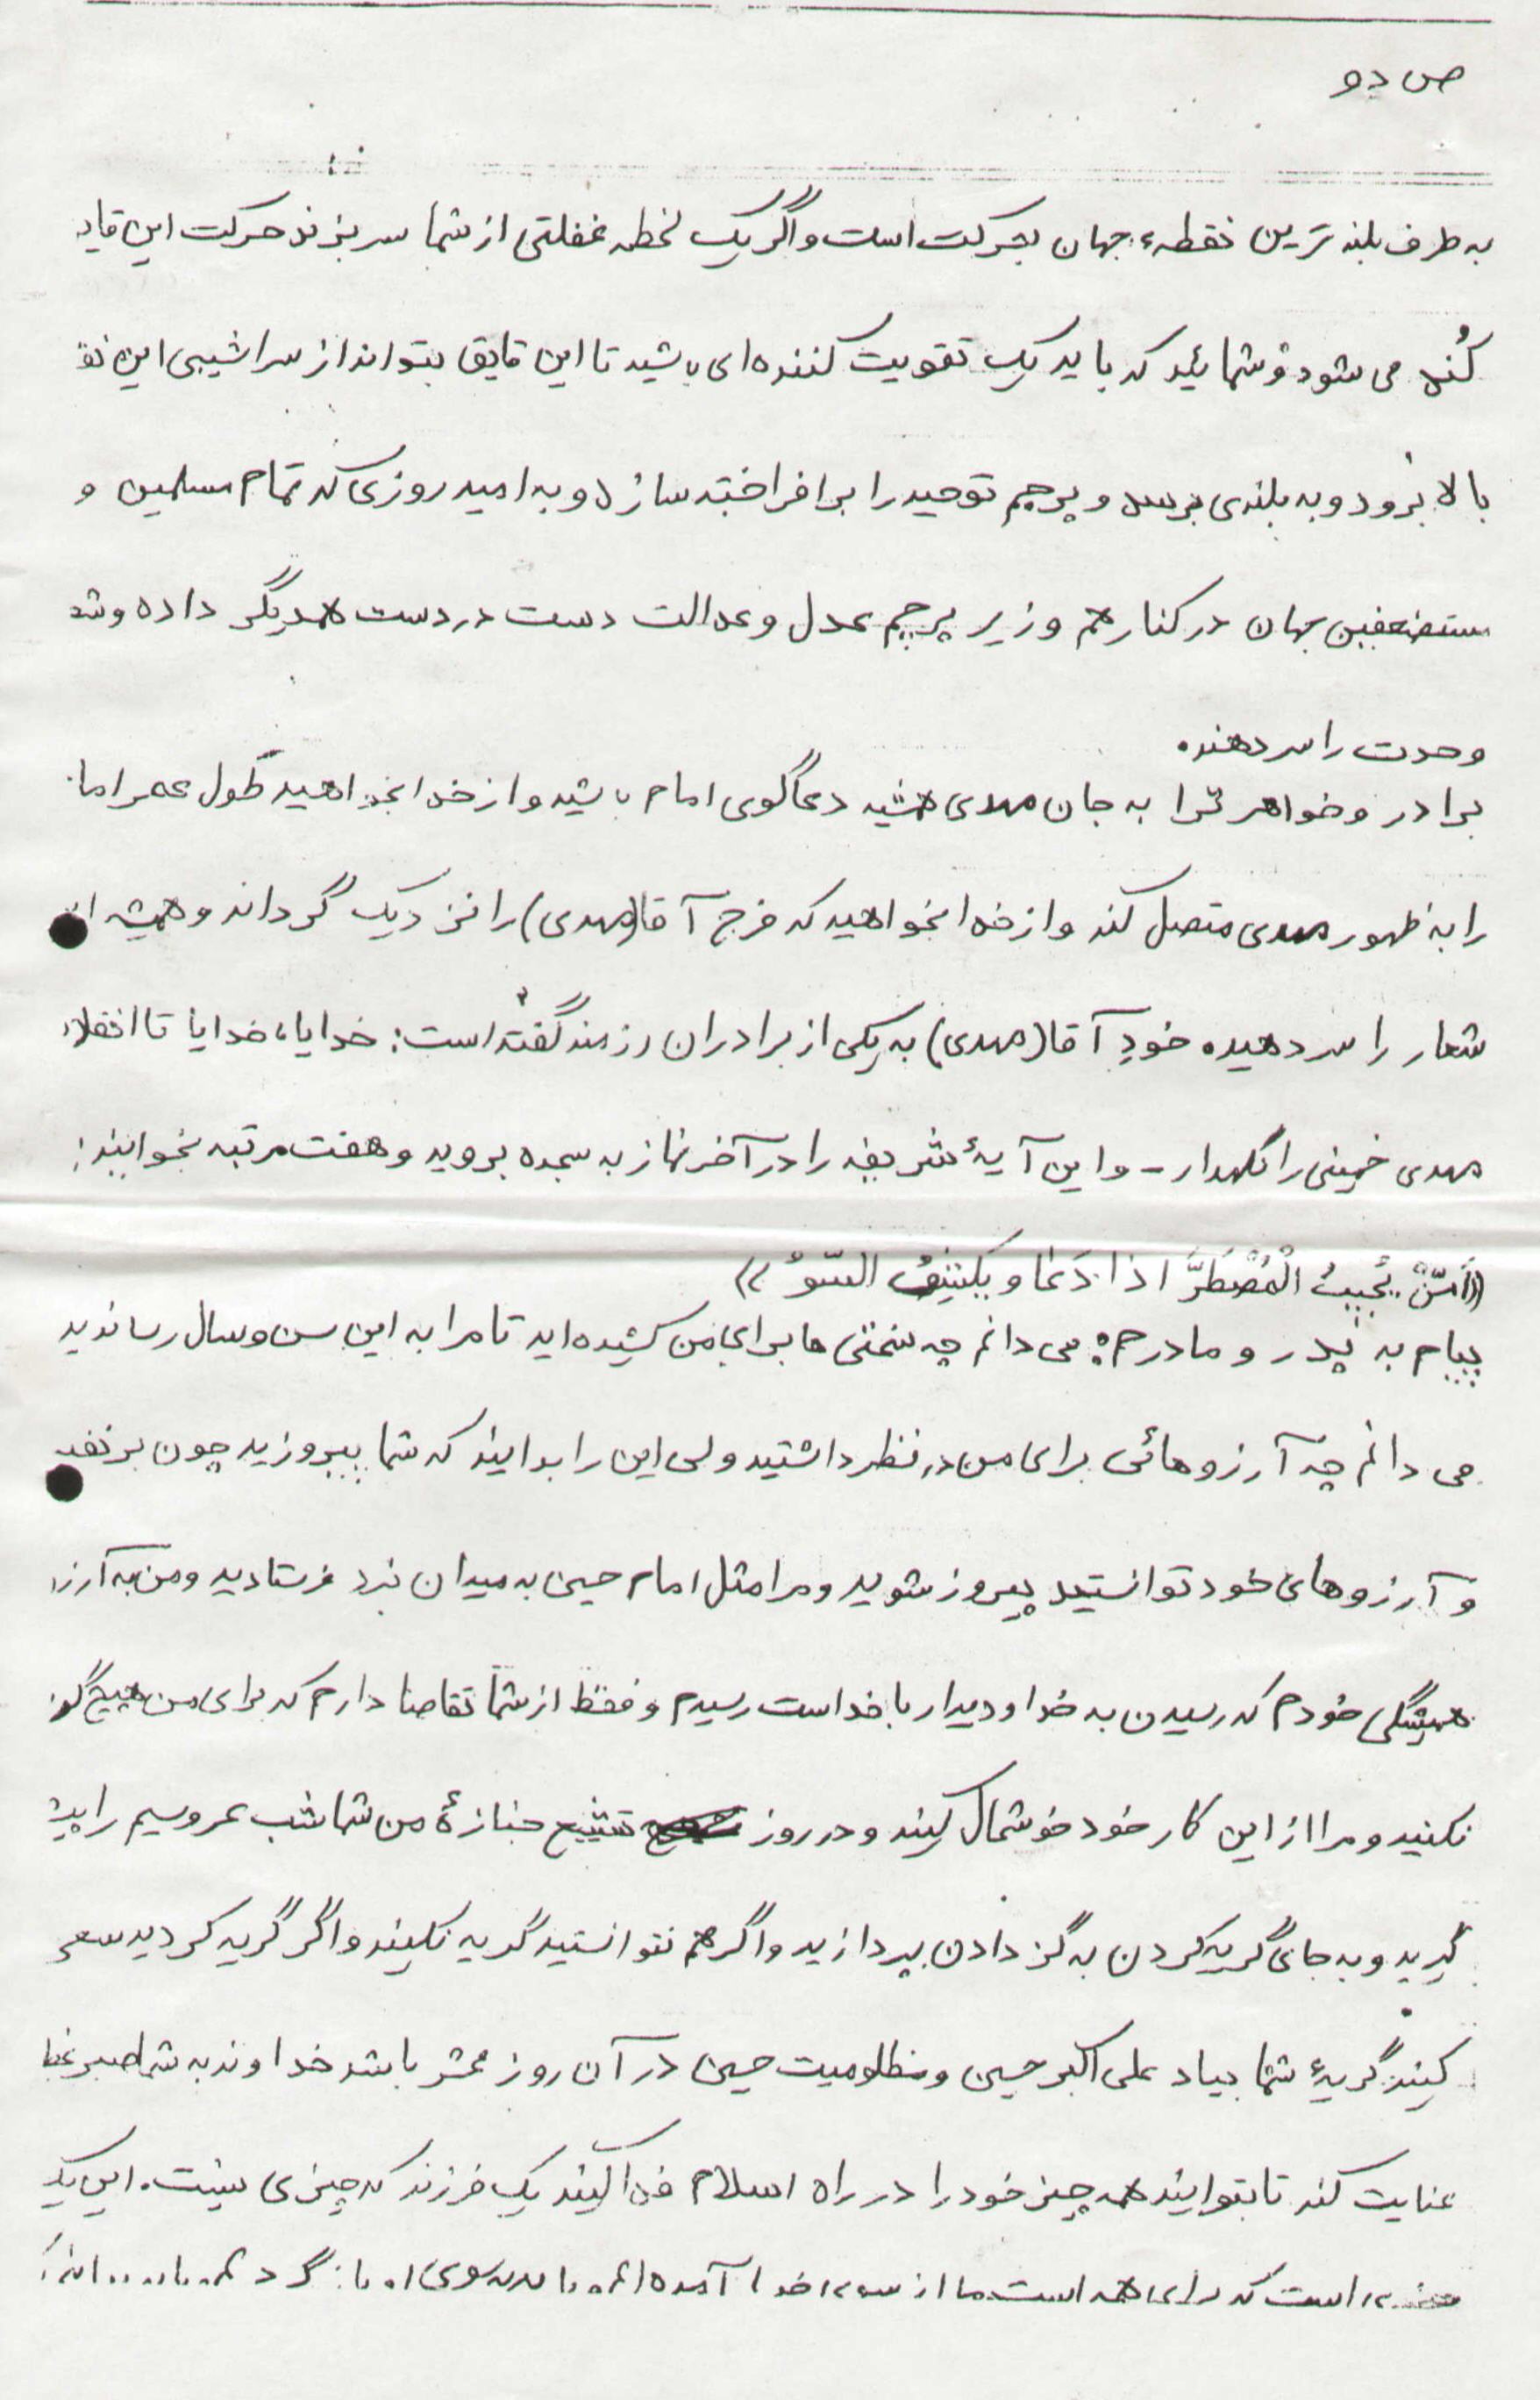 ص دو
به طرف بلندترین نقطهء جهان بحرکت است و اگر یک لحظه غفلتی از شما سر بزند حرکت این
کُند می شود و شمائید که باید یک تقویت کننده ای باشید تا این قایق بتواند از سراشیبی این
بالا برود و به بلندی برسد و پرچم توحید را برافراخته سازد و به امید روزی که تمام مسلمین و
مستضعفین جهان در کنار هم و زیر پرچم عدل و عدالت دست در دست همدیگر داده و
وحدت را سر دهند.
برادر و خواهر ترا به جان مهدی همیشه دعاگوی امام باشید و از خدا بخواهید طول عمر
را به ظهور مهدی متصل کند و از خدا بخواهید که فرج آقا (مهدی) را نزدیک گرداند و همیشه
شعار را سر دهید. خودِ آقا (مهدی) به یکی از برادران رزمنده گفته است: خدایا، خدایا تا
مهدی خمینی را نگهدار - و این آیهٔ شریفه را در آخر نماز به سجده بروید و هفت مرتبه بخوانید:
«اَمَّنْ یُجیبُ الْمُضْطَرَّ اذا دَعٰا و یکشِفُ السّوُء»
پیام به پدر و مادرم: می دانم چه سختی ها برای من کشیده اید تا مرا به این سن و سال رساندید
می دانم چه آرزوهائی برای من در نظر داشتید ولی این را بدانید که شما پیروزید چون بر
و آرزوهای خود توانستید پیروز شوید و مرا مثل امام حسین به میدان نبرد فرستادید و من به
همیشگی خودم که رسیدن به خدا و دیدار با خداست رسیدم و فقط از شما تقاضا دارم که برای من هیچ
نکنید و مرا از این کار خود خوشحال کنید و در روز تشییع جنازهٔ من شما شب عروسیم را
گیرید و به جای گریه کردن به گز دادن بپردازید و اگر هم نتوانستید گریه نکنید و اگر گریه کردید سعی
کنید گریهٔ شما بیاد علی اکبر حسین و مظلومیت حسین در آن روز محشر باشد خداوند به شما صبر
عنایت کند تا بتوانید همه چیز خود را در راه اسلام فدا کنید یک فرزند که چیزی نیست. این
است که برای همه است ما از سوی خدا آمده ایم و باید به سوی او باز گردیم